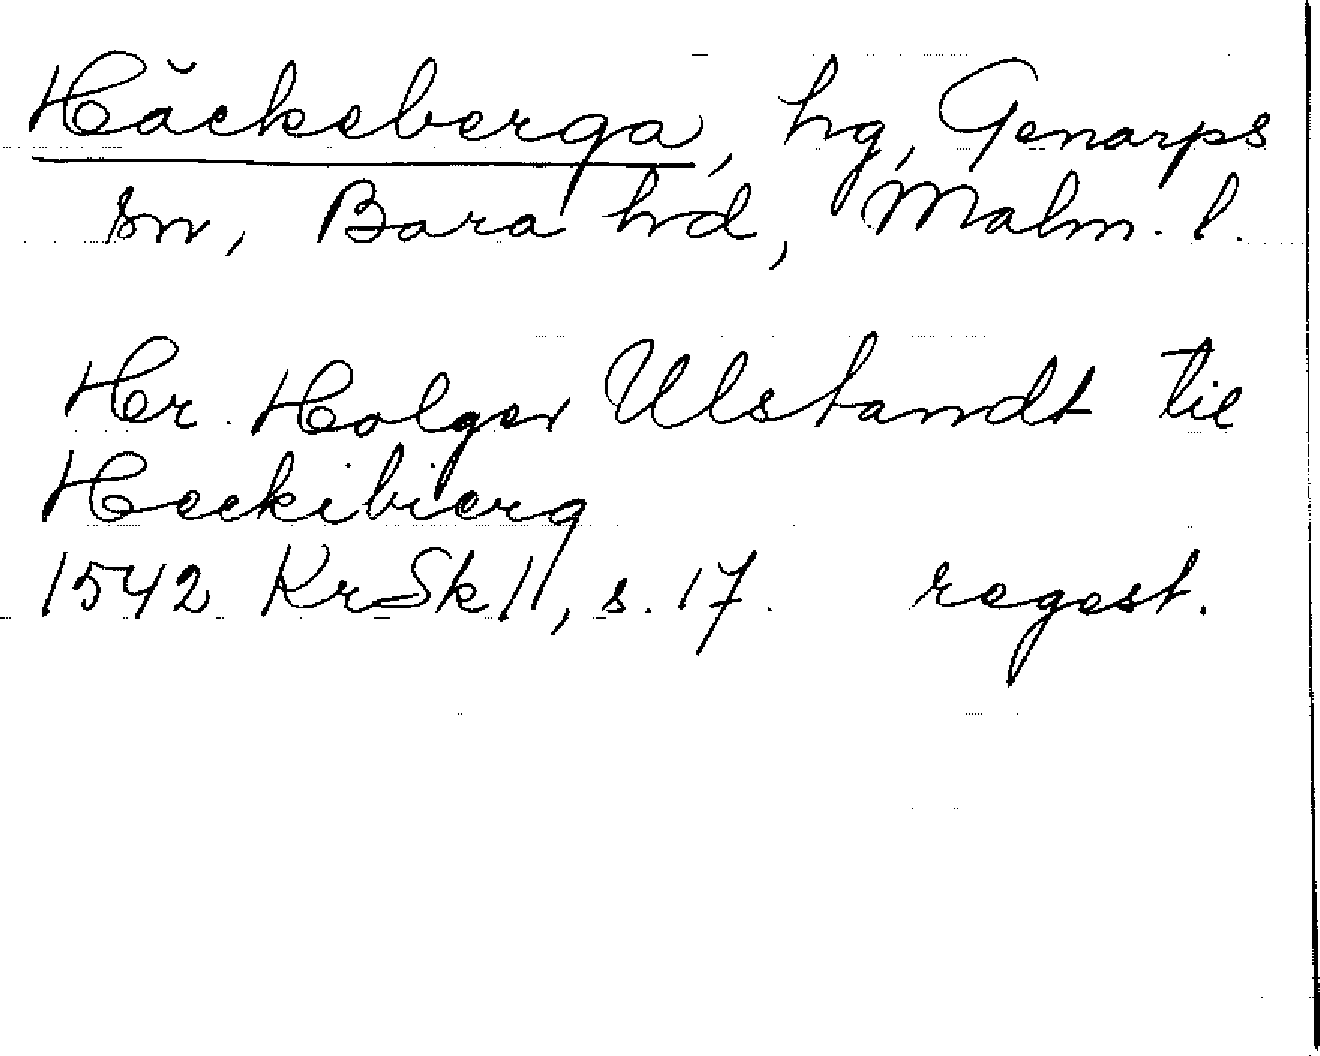 Häckeberga, hg, Genarps
sn, Bara hd, Malm. l.
Hr. Holger Ulstandt til
Heckibierg
1542 KrSk II, s. 17. regest.